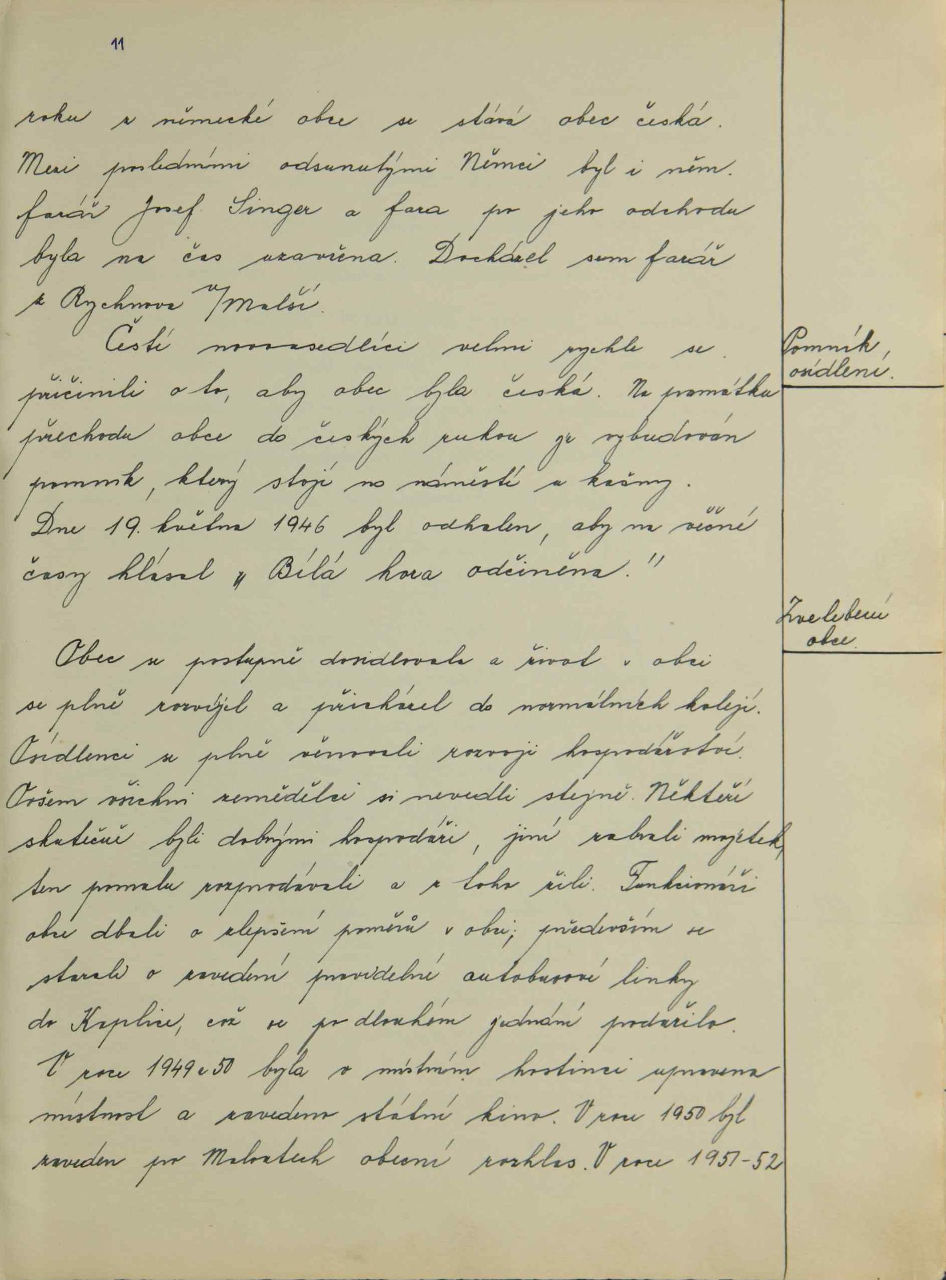 11
roku z německé obce se stává obec česká.
Mezi posledními odsunutými Němci byl i něm.
farář Josef Singer a fara po jeho odchodu
byla na čas uzavřena. Docházel sem farář
z Rychnova n/Malší.
Čestí novousedlíci velmi rychle se
Pomník
osídlení.
přičinili o to, aby obec byla česká. Na památku
přechodu obce do českých rukou je vybudován
pomník, který stojí na náměstí u kašny.
Dne 19. května 1946 byl odhalen, aby na věčné
časy hlásal „Bílá hora odčiněna."
Zvelebení
obce.
Obec se postupně dosidlovala a život v obci
se plně rozvíjel a přicházel do normálních kolejí.
Osídlenci se plně věnovali rozvoji hospodářství.
Ovšem všichni zemědělci si nevedli stejně. Někteří
skutečně byli dobrými hospodáři, jiní zabrali majetek,
ten pomalu rozprodávali a z toho žili. Funkcionáři
obce dbali o zlepšení poměrů v obci; především se
starali o zavedení pravidelné autobusové linky
do Kaplice, což se po dlouhém jednání podařilo.
V roce 1949 a 50 byla v místním hostinci upravena
místnost a zavedeno státní kino. V roce 1950 byl
zaveden po Malontech obecní rozhlas. V roce 1951-52